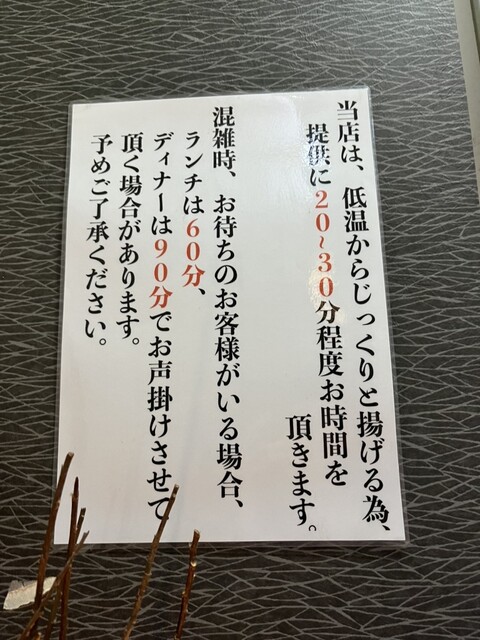 当店は、低温からじっくりと揚げる為、
提供に20~30分程度お時間を
頂きます。
混雑時、お待ちのお客様がいる場合、
ランチは60分、
ディナーは90分でお声掛けさせて
頂く場合があります。
予めご了承ください。